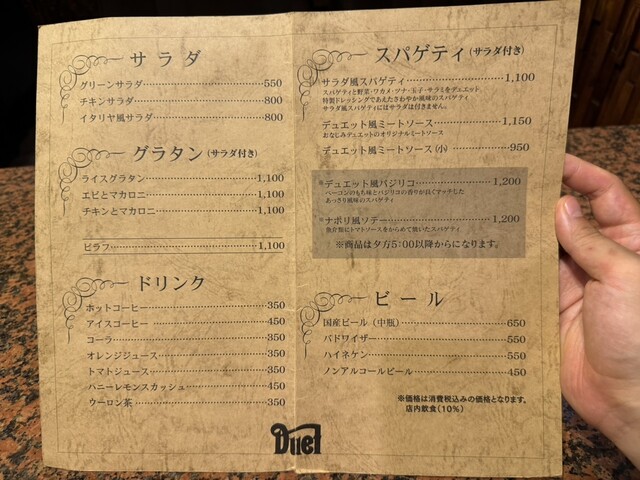 サラダ
グリーンサラダ 550
チキンサラダ 800
イタリヤ風サラダ 800
グラタン (サラダ付き)
ライスグラタン 1,100
エビとマカロニ 1,100
チキンとマカロニ 1,100
ピラフ 1,100
ドリンク
ホットコーヒー 350
アイスコーヒー 450
コーラ 350
オレンジジュース 350
トマトジュース 350
ハニーレモンスカッシュ 450
ウーロン茶 350
スパゲティ (サラダ付き)
サラダ風スパゲティ 1,100
スパゲティと野菜・ワカメ・ツナ・玉子・サラミをデュエット
特製ドレッシングであえたさわやか風味のスパゲティ
サラダ風スパゲティにはサラダは付きません。
デュエット風ミートソース 1,150
おなじみデュエットのオリジナルミートソース
デュエット風ミートソース (小) 950
※デュエット風バジリコ 1,200
ベーコンのもち味とバジリコの香りが良くマッチした
あっさり風味のスパゲティ
※ナポリ風ソテー 1,200
魚介類にトマトソースをからめて焼いたスパゲティ
※商品は夕方5:00以降からになります。
ビール
国産ビール (中瓶) 650
バドワイザー 550
ハイネケン 550
ノンアルコールビール 450
※価格は消費税込みの価格となります。
店内飲食(10%)
Duet